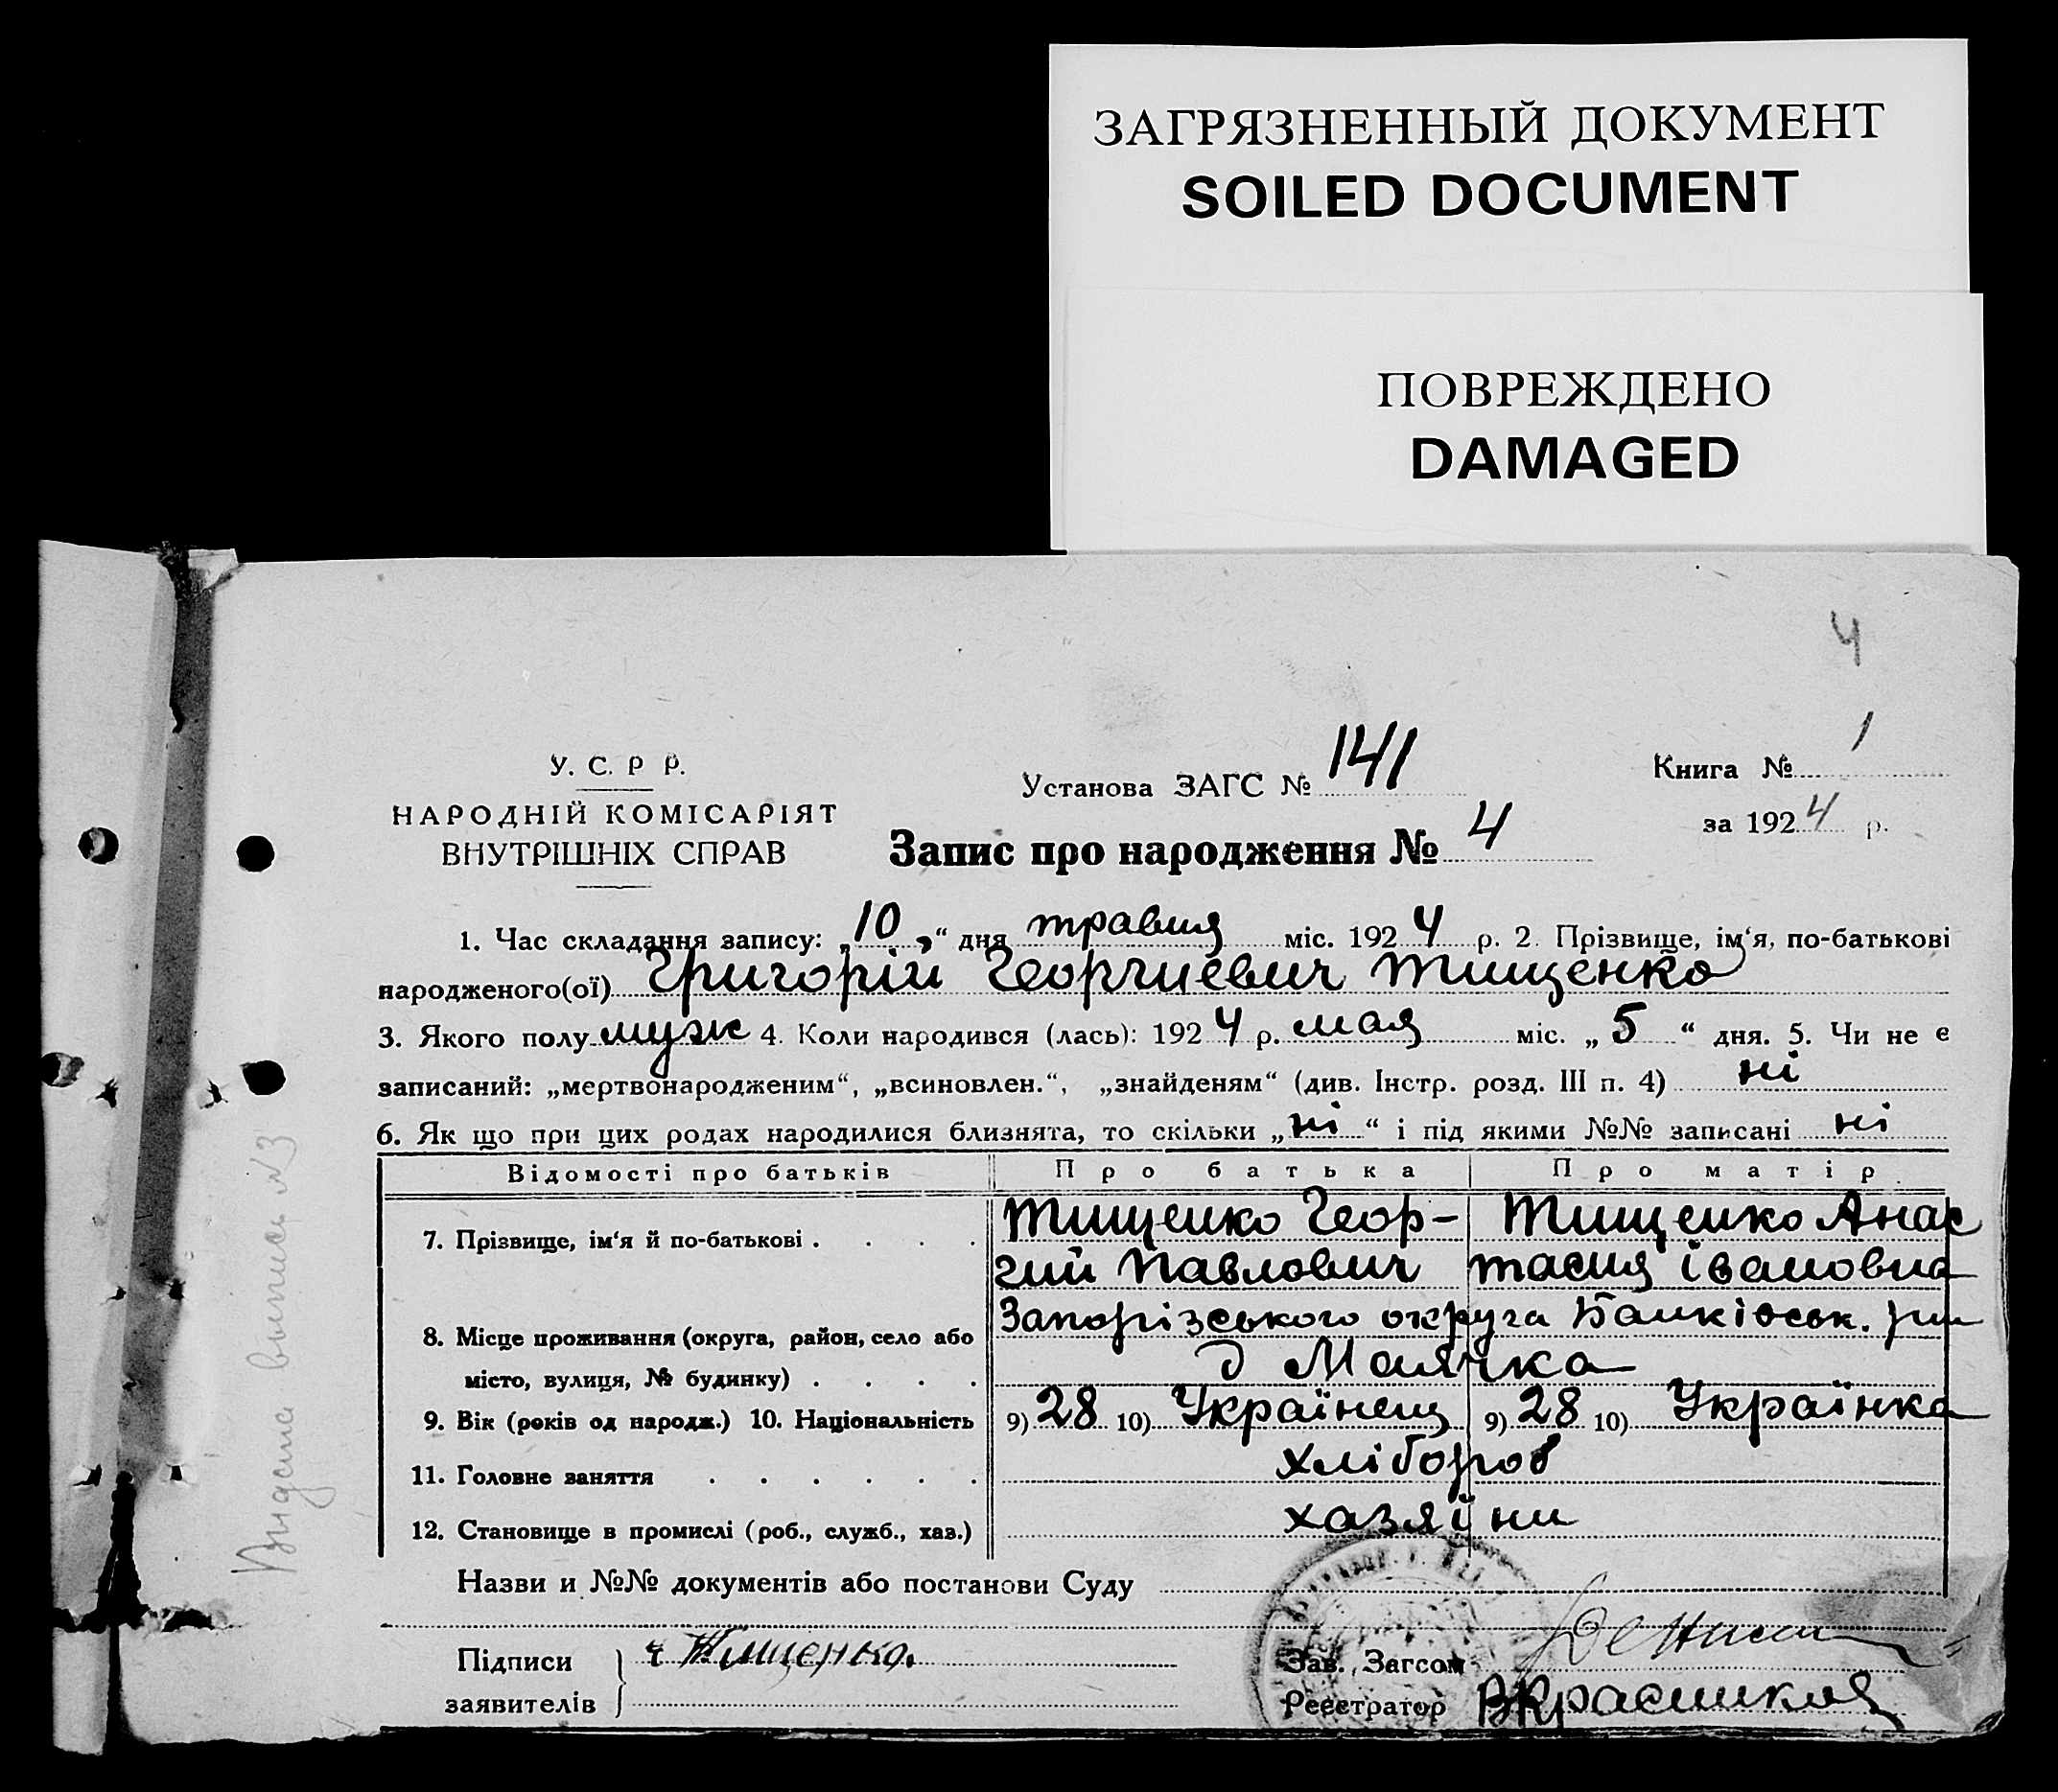 ЗАГРЯЗНЕННЫЙ ДОКУМЕНТ
SOILED DOCUMENT
ПОВРЕЖДЕНО
DAMAGED
4
У. С. Р Р.
НАРОДНІЙ КОМІСАРІЯТ
ВНУТРІШНІХ СПРАВ
Установа ЗАГС № 141
Книга № 1
за 1924 р.
Запис про народження № 4
1. Час складання запису: „10„“ дня травня міс. 1924 р. 2. Прізвище, ім‘я, по-батькові
народженого(ої) Григорій Георгиевич Тищенко
3. Якого полу муж 4. Коли народився (лась): 1924 р. мая міс. „5“ дня. 5. Чи не є
записаний: „мертвонародженим“, „всиновлен.“, „знайденям“ (див. Інстр. розд. III п. 4) ні
6. Як що при цих родах народилися близнята, то скільки „ні“ і під якими №№ записані ні
Відомості про батьків Про батька Про матір
7. Прізвище, ім‘я й по-батькові . . . . Тищенко Геор- Тищенко Анас
гий Павлович тасия івановна
8. Місце проживання (округа, район, село або Запорізського округа
місто, вулиця, № будинку) . . . . д Маячка
9. Вік (років од народж.) 10. Національність 9) 28 10) Українец 9) 28 10) Українка
11. Головне заняття . . . . . . хлібороб
12. Становище в промислі (роб., служб., хаз.) хазяїни
Назви и №№ документів або постанови Суду
Підписи
заявителів
Тищенко.
Зав. Загсом
Реєстратор
Видана выпись №3